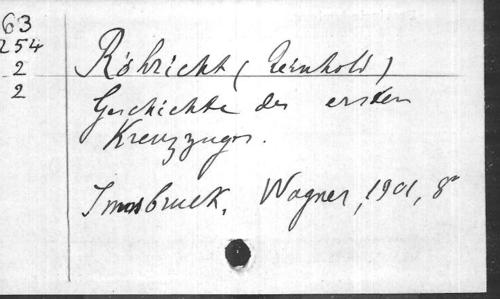 63
254
2
2
Röhricht (Reinhold)
Geschichte des ersten
Kreuzzuges.
Innsbruck, Wagner, 1901, 8°